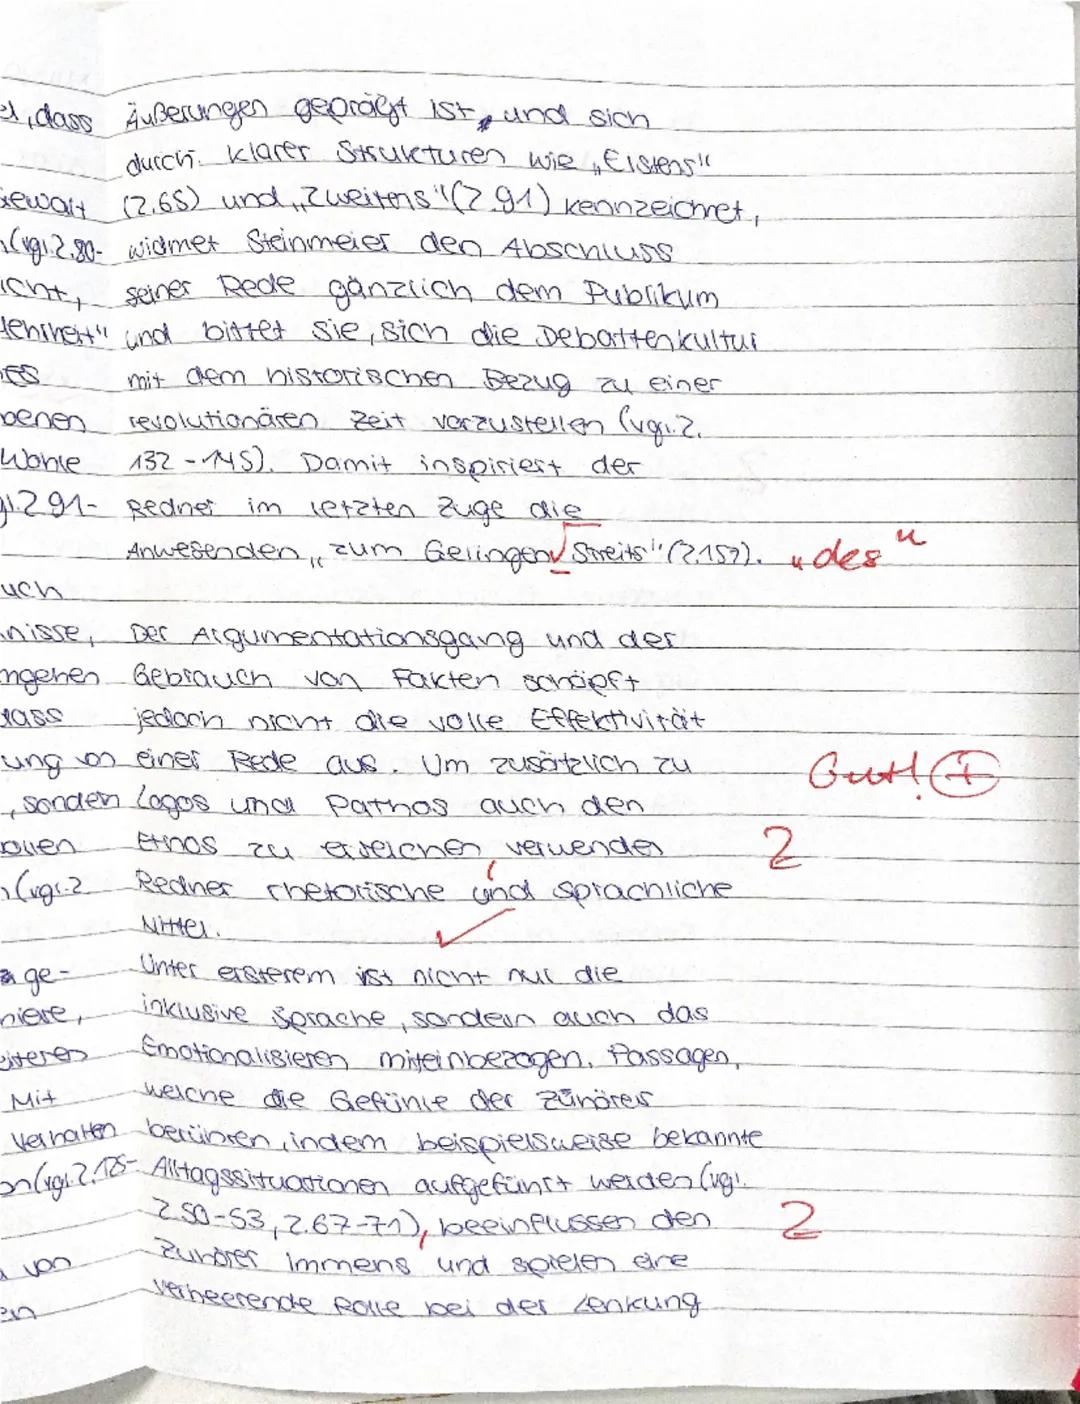 , dass Äußerungen geprägt ist, und sich
durch klarer Strukturen wie „Erstens"
(Z.65) und „Zweitens" (Z.91) kennzeichnet,
(vgl. Z.80- widmet Steinmeier den Abschluss
icht, seiner Rede gänzlich dem Publikum
und bittet sie, sich die Debattenkultur
mit dem historischen Bezug zu einer
benen revolutionären Zeit vorzustellen (vgl. Z.
Wohle 132-145). Damit inspiriert der
Z.91- Redner im letzten Zuge die
Anwesenden „zum Gelingen Streits" (Z.152). „des"
uch
nisse, Der Argumentationsgang und der
ngehen Gebrauch von Fakten schöpft
dass jedoch nicht die volle Effektivität
ung von einer Rede aus. Um zusätzlich zu Gut! +
, sondern Logos und Pathos auch den
ollen Ethos zu erreichen verwenden 2
(vgl. Z Redner rhetorische und sprachliche
Mittel.
ge- Unter ersterem ist nicht nur die
niere, inklusive Sprache, sondern auch das
eiteres Emotionalisieren miteinbezogen. Passagen,
Mit welche die Gefühle der Zuhörer
Verhalten berühren, indem beispielsweise bekannte
(vgl. Z.125- Alltagssituationen aufgeführt werden (vgl.
Z.50-53, Z.67-71), beeinflussen den 2
von Zuhörer immens und spielen eine
en verheerende Rolle bei der Lenkung